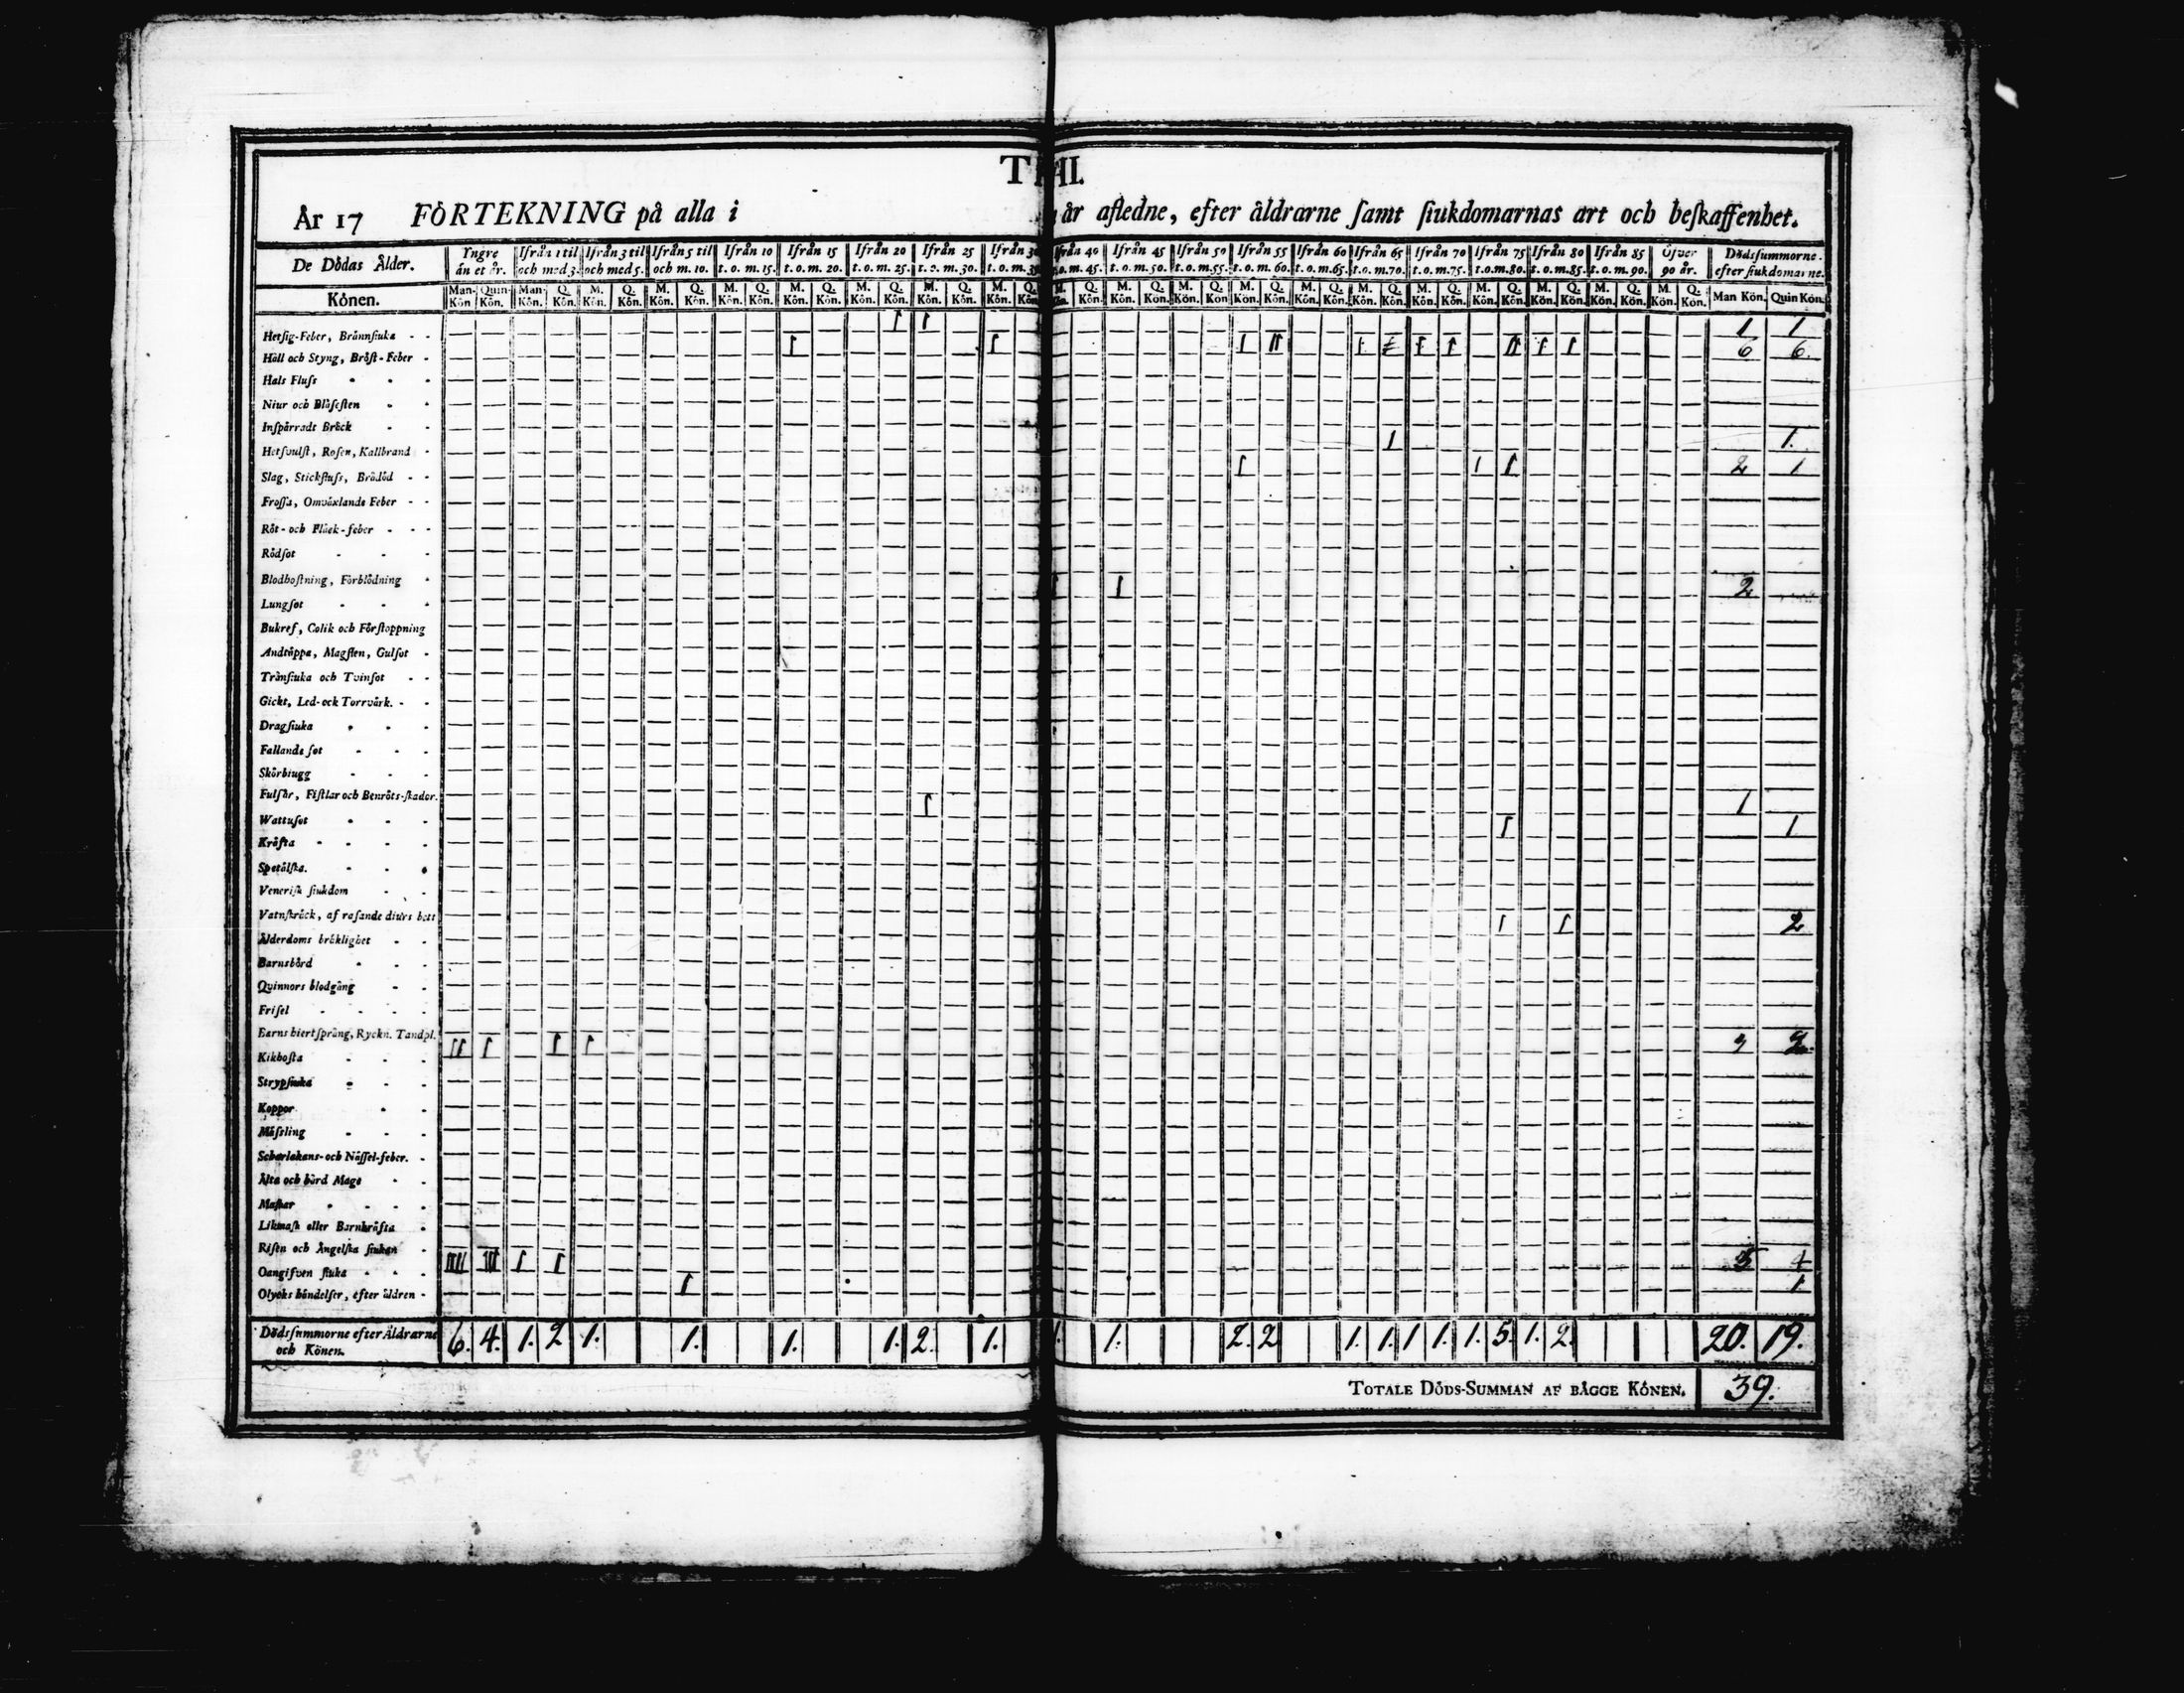 År 17 FÖRTEKNING på alla i år afledne, efter åldrarne samt siukdomarnas art och beskaffenhet.
De Dödas Ålder. Yngre än et år. Ifrån 1 til och med 3. Ifrån 3 til och med 5. Ifrån 5 til och m. 10. Ifrån 10 t. o. m. 15. Ifrån 15 t. o. m. 20. Ifrån 20 t. o. m. 25. Ifrån 25 t. o. m. 30. Ifrån 30 t. o. m. 35. Ifrån 40 t. o. m. 45. Ifrån 45 t. o. m. 50. Ifrån 50 t. o. m. 55. Ifrån 55 t. o. m. 60. Ifrån 60 t. o. m. 65. Ifrån 65 t. o. m. 70. Ifrån 70 t. o. m. 75. Ifrån 75 t. o. m. 80. Ifrån 80 t. o. m. 85. Ifrån 85 t. o. m. 90. Öfver 90 år. Dödssummorne efter siukdomarne.
Könen. Man-Kön Quin-Kön. Man-Kön. Q. Kön. M. Kön. Q. Kön. M. Kön. Q. Kön. M. Kön. Q. Kön. M. Kön. Q. Kön. M. Kön. Q. Kön. M. Kön. Q. Kön. M. Kön. Q. Kön. M. Kön. Q. Kön. M. Kön. Q. Kön. M. Kön. Q. Kön M. Kön. Q. Kön. M. Kön. Q. Kön. M. Kön. Q. Kön. M. Kön. Q. Kön. M. Kön. Q. Kön. M. Kön. Q. Kön. M. Kön. Q. Kön. M. Kön. Q. Kön. Man Kön. Quin Kön.
Hetsig-Feber, Brännsiuka 1 1 1 1
Håll och Styng, Bröst-Feber 1 1 1 II 1 1 1 1 II 1 1 6 6.
Hals Fluss
Niur och Blåsesten
Inspärradt Bråck
Hetsvulst, Rosen, Kallbrand 1 1.
Slag, Stickfluss, Brådöd 1 1 1 2 1
Frossa, Omväxlande Feber
Röt- och Fläck-feber
Rödsot
Blodhostning, Förblödning
Lungsot 1 1 2
Bukref, Colik och Förstoppning
Andtäppa, Magsten, Gulsot
Trånsiuka och Tvinsot
Gickt, Led- ock Torrvärk.
Dragsiuka
Fallande sot
Skörbiugg
Fulsår, Fistlar och Benröts-skador.
Wattusot 1 1
Kräfta 1 1
Spetälska.
Venerisk siukdom
Vatnskräck, af rasande diurs bett
Ålderdoms bräklighet 1 1 2
Barnsbörd
Quinnors blodgång
Frisel
Barns hiertsprång, Ryckn. Tandpl.
Kikhosta II 1 1 1 3 2.
Strypsiuka
Koppor
Mässling
Scharlakans- och Nässel-feber.
Älta och hård Mage
Maskar
Likmask eller Barnkräfta
Risen och Ängelska siukan
Oangifven siuka IIII III 1 1 5 4
Olycks händelser, efter äldren 1 1
Dödssummorne efter Åldrarne och Könen. 6. 4. 1. 2 1. 1. 1. 1. 2. 1. 1. 1. 2. 2 1. 1. 1 1. 1. 5. 1. 2. 20. 19.
TOTALE DÖDS-SUMMAN AF BÅGGE KÖNEN. 39.